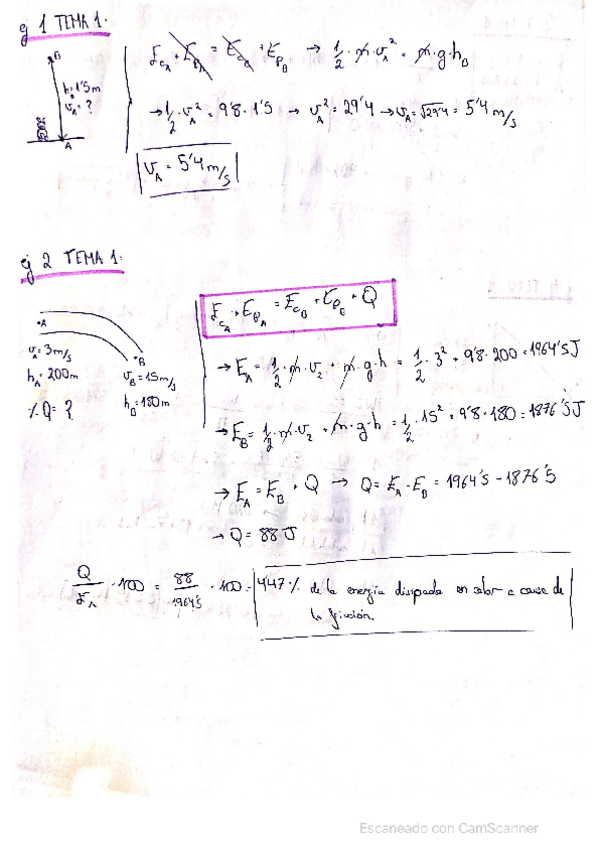 ej 1 TEMA 1.
B
h = 1'5m
v_A = ?
A
E_cA + E_pA = E_cB + E_pB → 1/2 · m · v_A² = m · g · h_B
→ 1/2 · v_A² = 9'8 · 1'5 → v_A² = 29'4 → v_A = √29'4 = 5'4 m/s
v_A = 5'4 m/s
ej 2 TEMA 1.
A
B
v_A = 3m/s
h_A = 200m
% Q = ?
v_B = 15m/s
h_B = 180m
E_cA + E_pA = E_cB + E_pB + Q
→ E_A = 1/2 · m · v² + m · g · h = 1/2 · 3² + 9'8 · 200 = 1964'5 J
→ E_B = 1/2 · m · v² + m · g · h = 1/2 · 15² + 9'8 · 180 = 1876'5 J
→ E_A = E_B + Q → Q = E_A - E_B = 1964'5 - 1876'5
→ Q = 88 J
Q/E_A · 100 = 88/1964'5 · 100 = 4'47 % de la energía disipada en calor a causa de
la fricción.
Escaneado con CamScanner